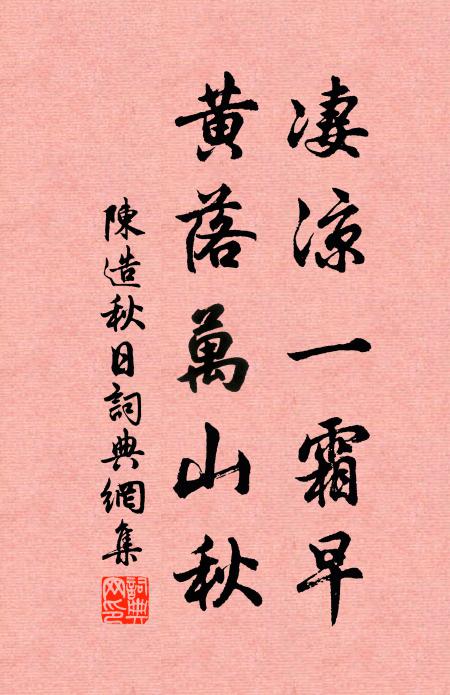 凄涼一霜早
黄落萬山秋
陳造秋日詞典網集
詞典網印